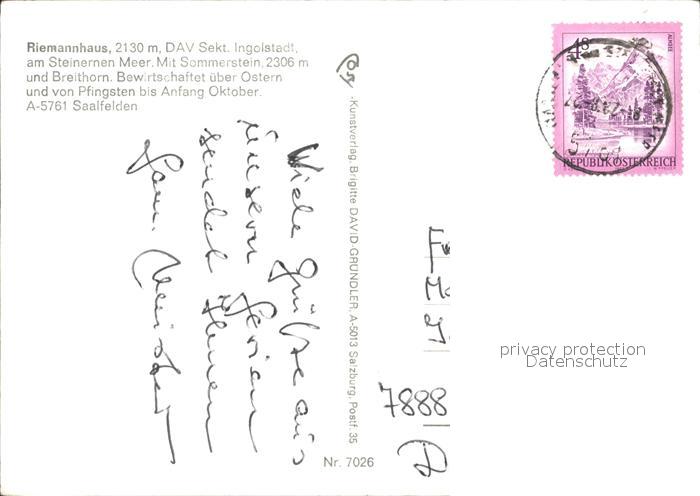 Riemannhaus, 2130 m, DAV Sekt. Ingolstadt,
am Steinernen Meer. Mit Sommerstein, 2306 m
und Breithorn. Bewirtschaftet über Ostern
und von Pfingsten bis Anfang Oktober.
A-5761 Saalfelden
Viele Grüße aus
unseren Ferien
sendet Ihnen
Fam.
-Kunstverlag, Brigitte DAVID-GRÜNDLER, A-5013 Salzburg, Postf. 35
Nr. 7026
4 S
ALMSEE
REPUBLIK ÖSTERREICH
7888
privacy protection
Datenschutz